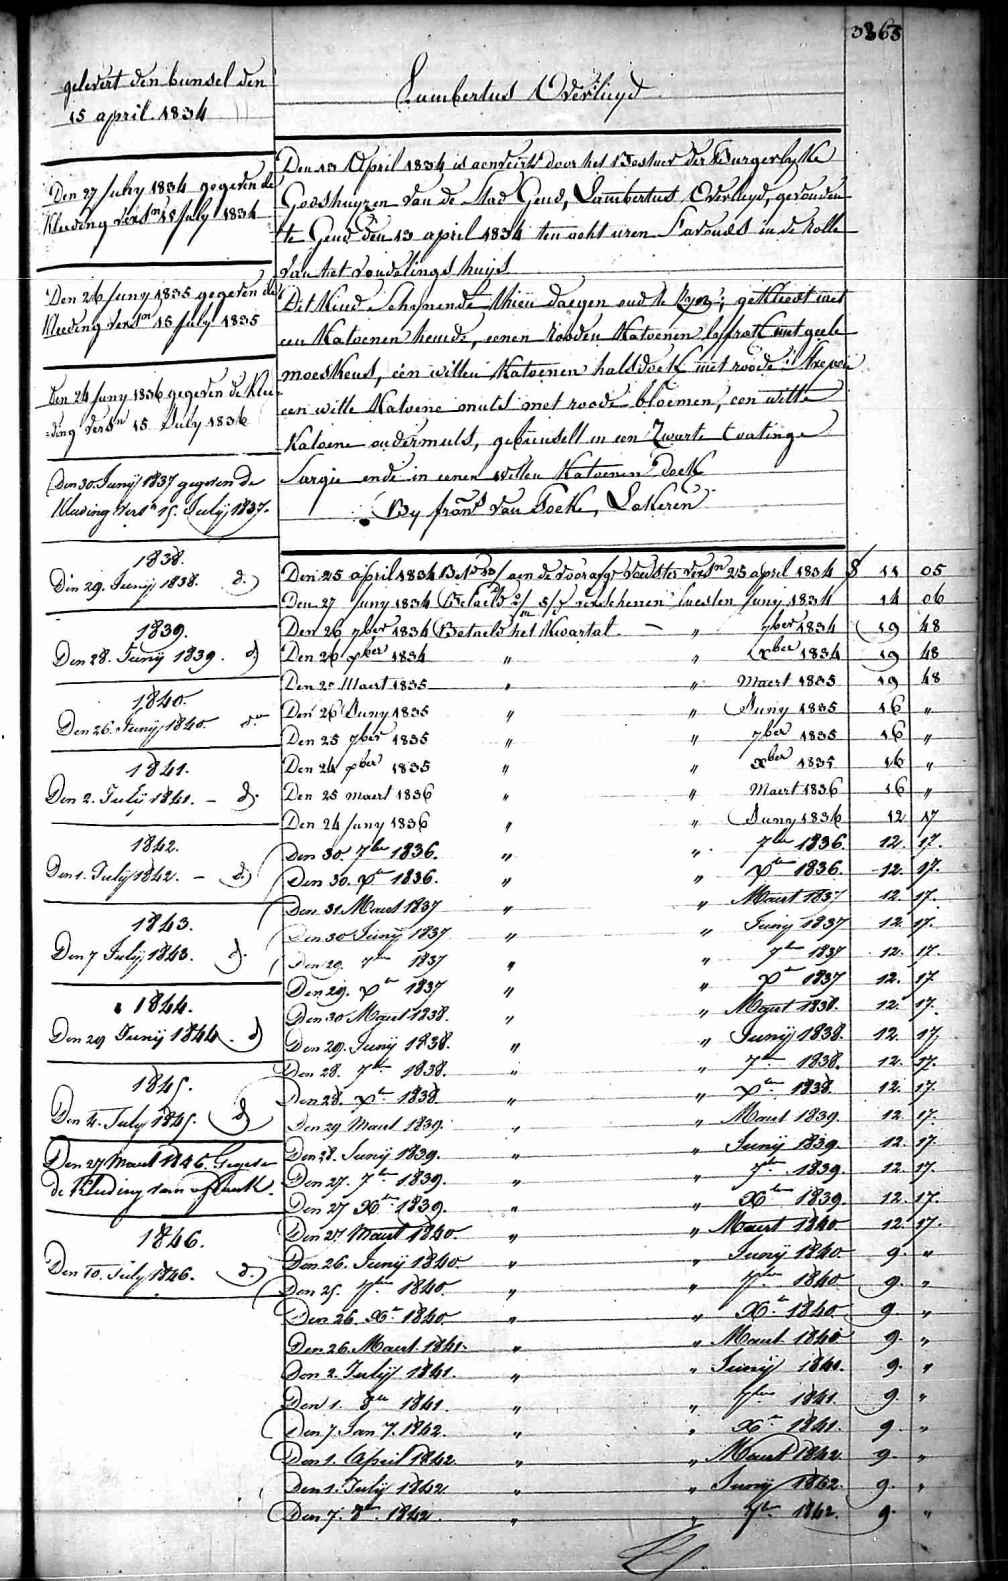 3363
gelevert den bunsel den
15 april 1834
Den 27 July 1834 gegeven de
Kleeding versn 15 July 1834
Den 26 Juny 1835 gegeven de
Kleeding versn 15 July 1835
Den 24 Juny 1836 gegeven de Klee-
=ding versn 15 July 1836
Den 30. Junij 1837 gegeven de
Kleeding versn 15. Julij 1837.
1838.
Den 29. Junij 1838. d.
1839.
Den 28. Junij 1839. d
1840.
Den 26. Junij 1840
1841.
Den 2. Julij 1841. — d.
1842.
Den 1. Julij 1842. — d.
1843.
Den 7 Julij 1843. d.
1844.
Den 29 Junij 1844. d
1845.
Den 4. July 1845. d
Den 27 Maert 1846. Gegeven
de Kleeding van
1846.
Den 10. July 1846. d.
Lambertus Overluyd
Den 13 April 1834 is aenveirt door het Bestuer der Burgerlyke
Godshuyzen van de Stad Gend, Lambertus Overluyd, gevonden
te Gend den 13 april 1834 ten acht uren s'avonds in de rolle
van het vondelingshuys
Dit Kind schynende thien daegen oud te zyn; gekleed met
een Katoenen hemde, eenen rooden Katoenen met geele
een witten Katoenen halsdoek met roode
een witte Katoene muts met roode bloemen, een witte
Katoene ondermuts, gebunselt in een Zwarte Coatinge
Sargie ende in eenen witten Katoenen doek
By frans van Lokeren
Den 25 april 1834 aen de voorafgt versn 25 april 1834 11 05
Den 27 Juny 1834 Betaelt Juny 1834 14 06
Den 26 7ber 1834 Betaelt het Kwartal — " 7ber 1834 19 48
Den 26 xber 1834 " " xber 1834 19 48
Den 2 Maert 1835 " " Maert 1835 19 48
Den 26 Juny 1835 " " Juny 1835 16 "
Den 25 7ber 1835 " " 7ber 1835 16 "
Den 24 xber 1835 " " xber 1835 16 "
Den 25 maert 1836 " " Maert 1836 16 "
Den 24 Juny 1836 " " Juny 1836 12 17
Den 30. 7ber 1836. " " 7ber 1836. 12. 17.
Den 30. xr 1836. " " xr 1836. 12. 17.
Den 31 Maert 1837 " " Maert 1837 12. 17.
Den 30 Junij 1837 " " Junij 1837 12. 17.
Den 29. 7r 1837 " " 7r 1837 12. 17.
Den 29. xr 1837 " " xr 1837 12. 17
Den 30 Maert 1838. " " Maert 1838. 12. 17.
Den 29. Junij 1838. " " Junij 1838. 12. 17
Den 28. 7r 1838. " " 7r 1838. 12. 17.
Den 28. xr 1838 " " xr 1838 12. 17
Den 29 Maert 1839. " " Maert 1839. 12 17.
Den 28. Junij 1839. " " Junij 1839. 12. 17.
Den 27. 7r 1839. " " 7r 1839. 12. 17.
Den 27 Xr 1839. " " Xr 1839 12. 17.
Den 27 Maert 1840. " " Maert 1840 12. 17.
Den 26. Junij 1840 " " Junij 1840 9. "
Den 25. 7r 1840. " " 7r 1840 9. "
Den 26. Xr 1840 " " Xr 1840 9. "
Den 26. Maert 1841. " " Maert 1840 9. "
Den 2. Julij 1841. " " Junij 1841. 9. "
Den 1. 8r 1841. " " 7r 1841. 9. "
Den 7. Janv. 1842. " " Xr 1841. 9. "
Den 1. April 1842 " " Maert 1842 9. "
Den 1. Julij 1842 " " Junij 1842. 9. "
Den 7. 8r 1842. " " 7r 1842. 9. "